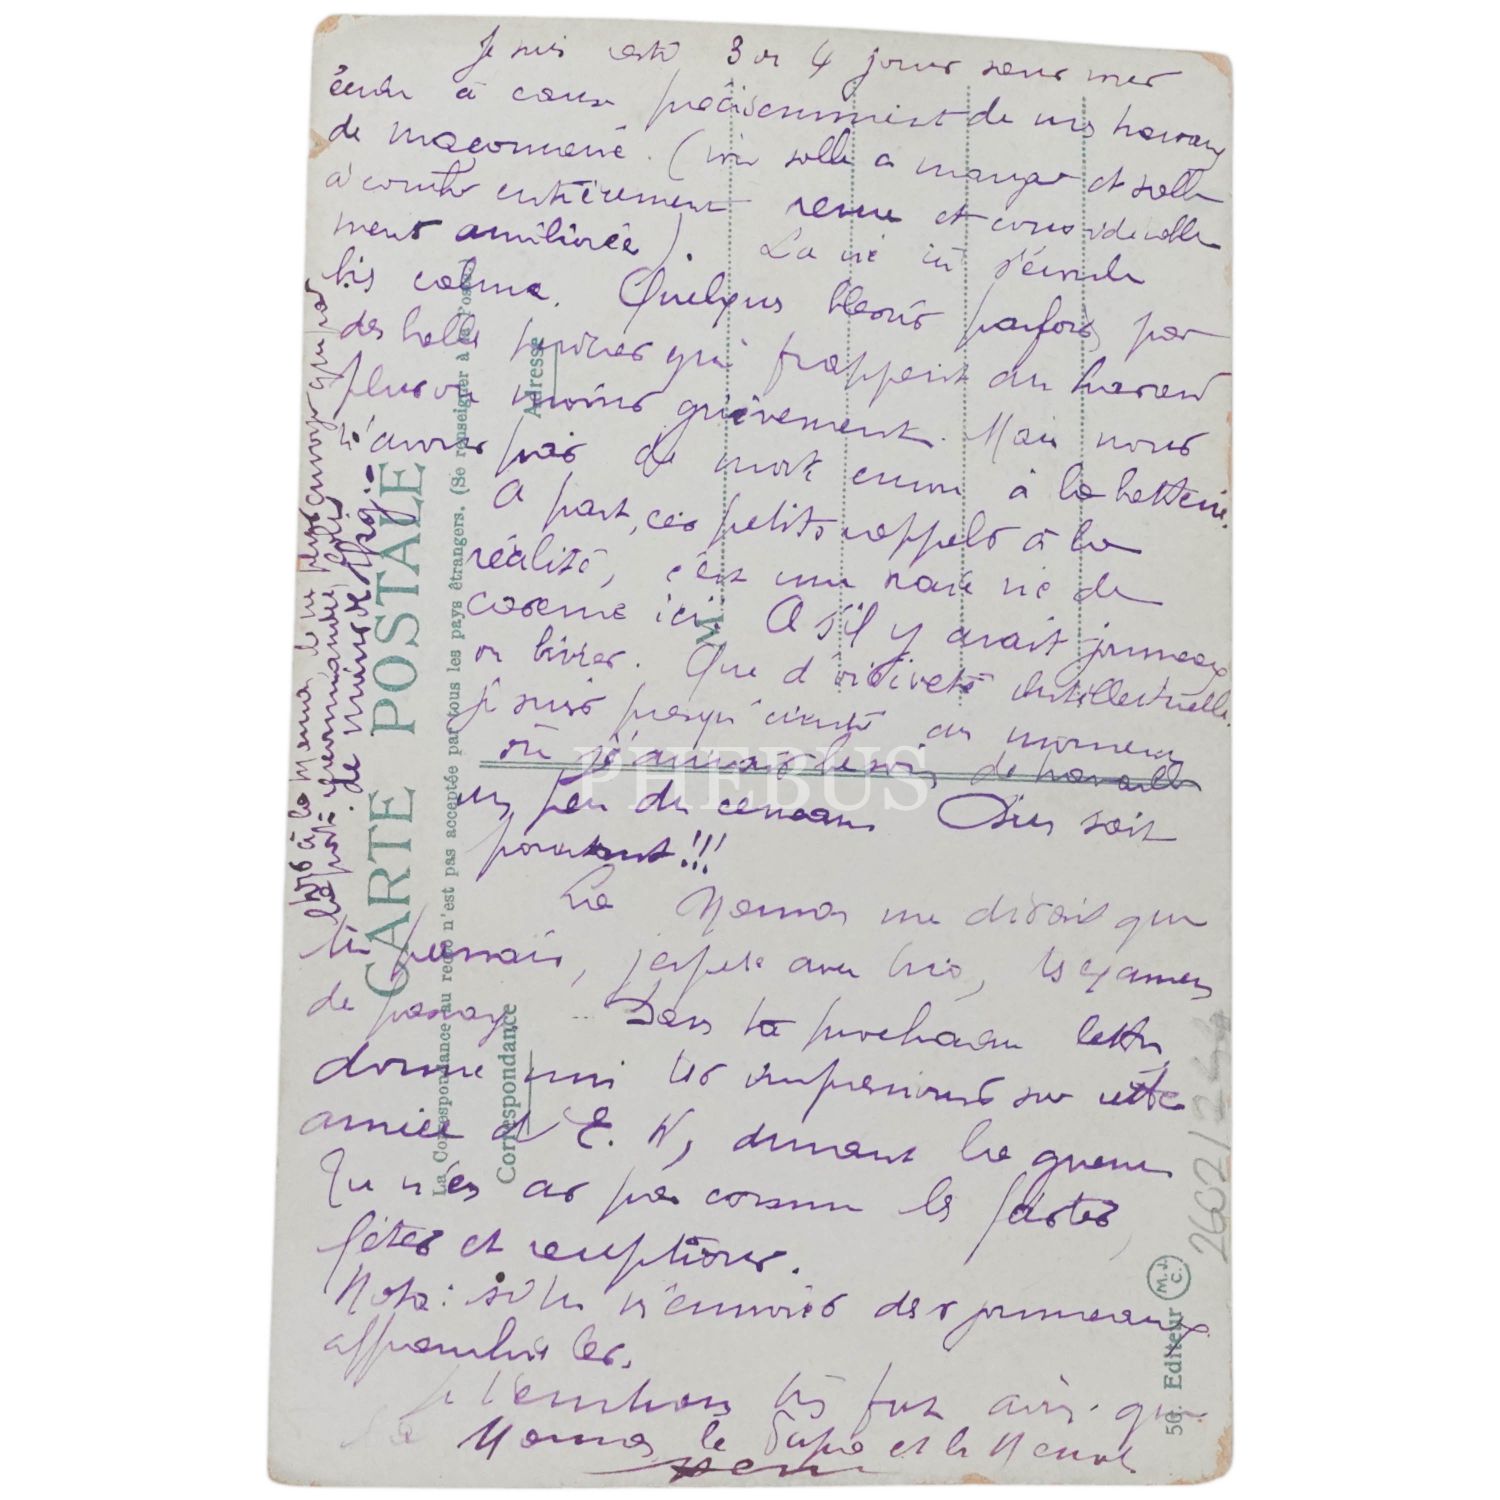 Je suis resté 3 ou 4 jours sans mes
écrire à cause précisemment de nos travaux
de maçonnerie. (une salle a manger et salle
entièrement revue et considerable
ment améliorée). La vie ici s'écoule
très calme. Quelques blessés parfois par
des balles perdues qui frappent au hasard
plus ou moins grièvement. Mais nous
n'avons pas de mort encore à la batterie.
A part, ces petits rappels à la
réalité, c'est une vraie vie de
caserne ici. A s'il y avait journaux
ou livres. Que d'oisiveté intellectuelle.
je suis presqu' au moment
où j'aurais besoin de travailler
un peu du cerveau Dieu soit
pourtant!!!
La Maman me disait que
tu passais, j'espère avec brio, tes examens
de passage Dans ta prochaine lettre,
donne moi tes impressions sur cette
année d'E. N, durant la guerre
Tu n'es as pas connu les fastes,
fêtes et receptions.
Nota: si tu m'envoies des journaux
affranchis les.
Je t'embrasse très fort ainsi que
la Maman le Papa et la
à la Mema de ne pas envoyer que par
la poste recommandée
CARTE POSTALE
La Correspondance au recto n'est pas acceptée par tous les pays étrangers. (Se renseigner à la Poste)
Correspondance
Adresse
M
50. Editeur
M.J.
C.
PHEBUS